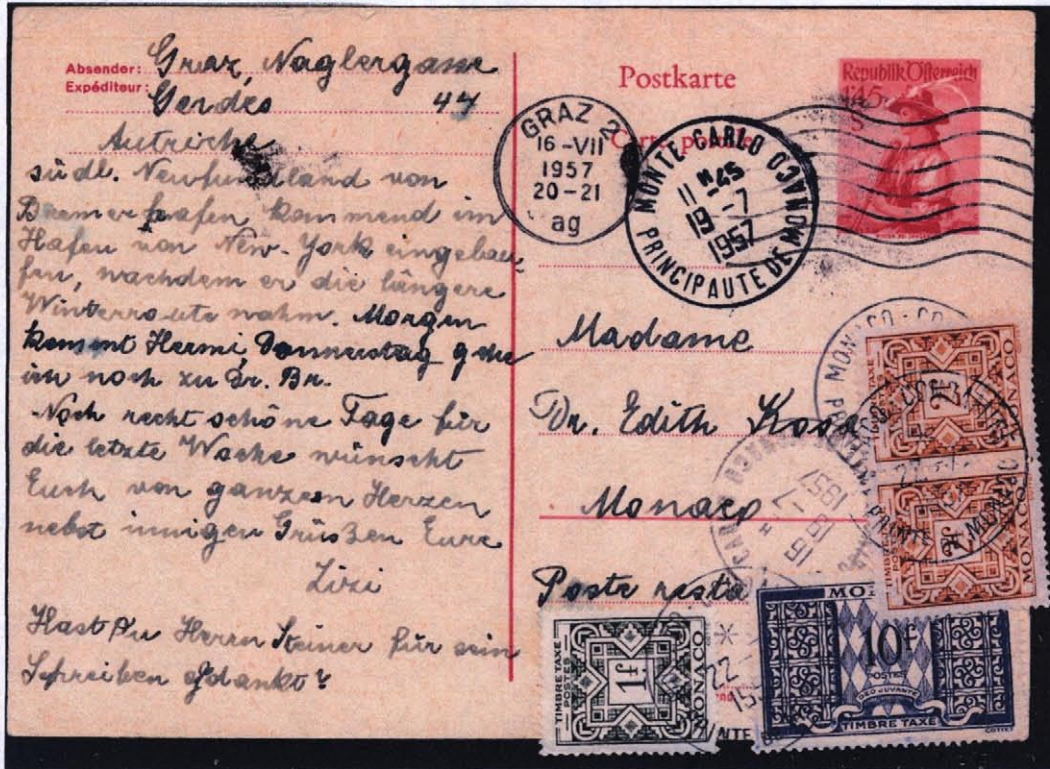 Absender: Graz, Naglergasse
Expéditeur: Gerdes 44
Autriche
südl. Newfundland von
Bremerhafen kommend im
Hafen von New-York eingelau
fen, nachdem er die längere
Winterroute nahm. Morgen
kommt Hermi, Donnerstag gehe
ich noch zu Dr. Br.
Noch recht schöne Tage für
die letzte Woche wünscht
Euch von ganzem Herzen
nebst innigen Grüßen Eure
Lizi
Hast Du Herrn Steiner für sein
Schreiben gedankt?
Postkarte
Carte postale
Republik Österreich
1'45
S
GRAZ 2
16-VII
1957
20-21
ag
MONTE CARLO
11 H 45
19-7
1957
PRINCIPAUTE DE MONACO
Madame
Dr. Edith
Monaco
Poste resta
MONACO
TIMBRE TAXE
POSTES
2f
MONACO
TIMBRE TAXE
POSTES
2f
15 H 15
-7
1957
TIMBRE TAXE
POSTES
1f
MONACO
22
15
MO
10f
POSTES
DEO JUVANTE
TIMBRE TAXE
COTTET